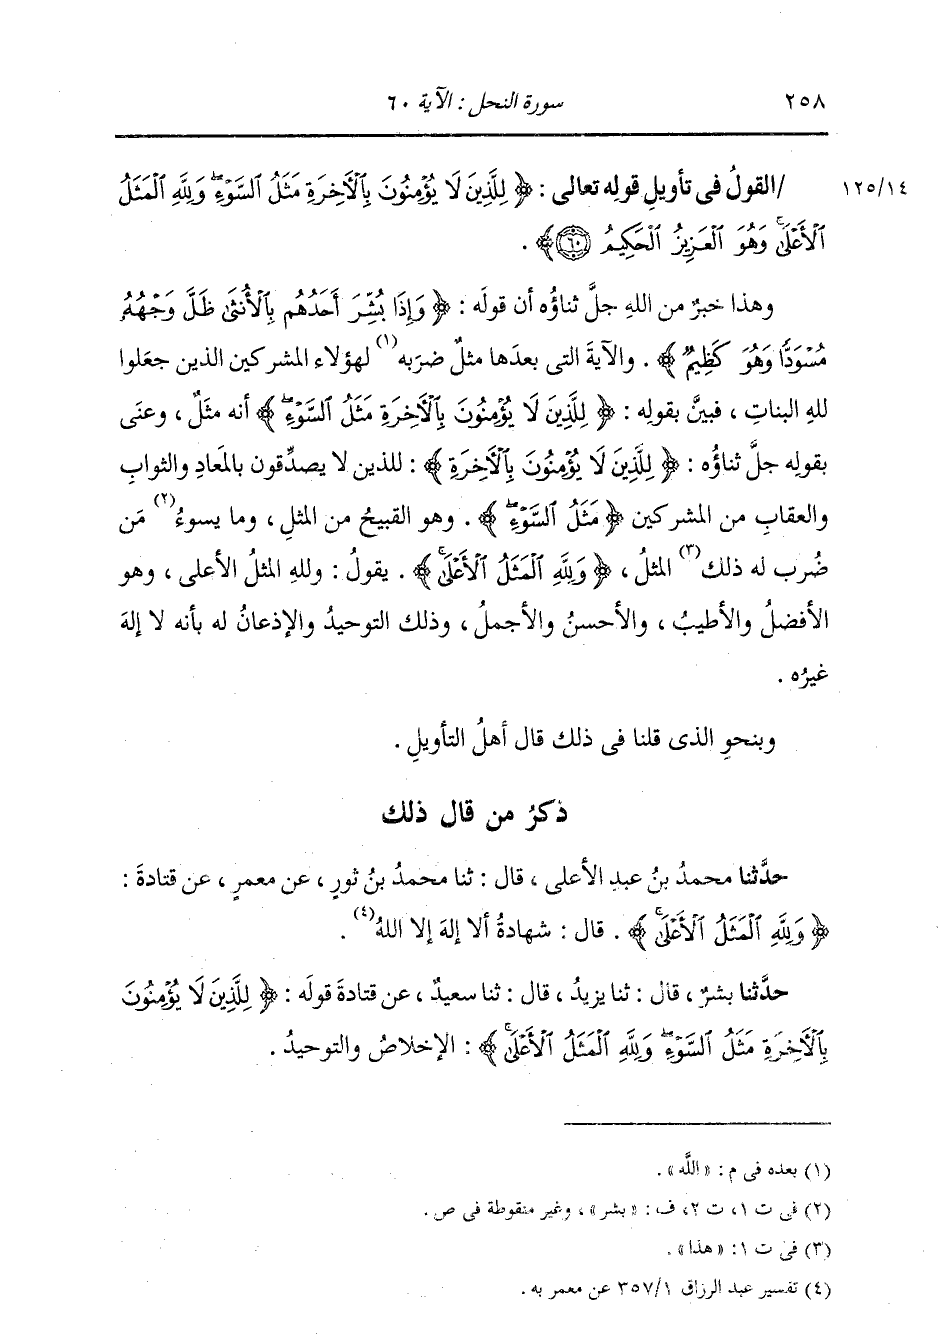 ٢٥٨ سورة النحل : الآية ٦٠
١٢٥/١٤ /القولُ فى تأويلِ قولِه تعالى : ﴿ لِلَّذِينَ لَا يُؤْمِنُونَ بِٱلْأَخِرَةِ مَثَلُ ٱلسَّوْءِۖ وَلِلَّهِ ٱلْمَثَلُ
ٱلْأَعْلَىٰۚ وَهُوَ ٱلْعَزِيزُ ٱلْحَكِيمُ ٦٠ ﴾ .
وهذا خبرٌ من اللهِ جلَّ ثناؤُه أن قولَه : ﴿ وَإِذَا بُشِّرَ أَحَدُهُم بِٱلْأُنثَىٰ ظَلَّ وَجْهُهُۥ
مُسْوَدًّا وَهُوَ كَظِيمٌ ﴾ . والآيةَ التى بعدَها مثلٌ ضرَبه(١) لهؤلاء المشركين الذين جعَلوا
للهِ البناتِ ، فبينَّ بقولِه : ﴿ لِلَّذِينَ لَا يُؤْمِنُونَ بِٱلْأَخِرَةِ مَثَلُ ٱلسَّوْءِۖ ﴾ أنه مثَلٌ ، وعنَى
بقولِه جلَّ ثناؤُه : ﴿ لِلَّذِينَ لَا يُؤْمِنُونَ بِٱلْأَخِرَةِ ﴾ : للذين لا يصدِّقون بالمَعادِ والثوابِ
والعقابِ من المشركين ﴿ مَثَلُ ٱلسَّوْءِۖ ﴾ . وهو القبيحُ من المثلِ ، وما يسوءُ(٢) مَن
ضُرب له ذلك(٣) المثلُ ، ﴿ وَلِلَّهِ ٱلْمَثَلُ ٱلْأَعْلَىٰۚ ﴾ . يقولُ : وللهِ المثلُ الأعلى ، وهو
الأفضلُ والأطيبُ ، والأحسنُ والأجملُ ، وذلك التوحيدُ والإذعانُ له بأنه لا إلهَ
غيرُه .
وبنحوِ الذى قلنا فى ذلك قال أهلُ التأويلِ .
ذكرُ من قال ذلك
حدَّثنا محمدُ بنُ عبدِ الأعلى ، قال : ثنا محمدُ بنُ ثورٍ ، عن معمرٍ ، عن قتادةَ :
﴿ وَلِلَّهِ ٱلْمَثَلُ ٱلْأَعْلَىٰۚ ﴾ . قال : شهادةُ ألا إلهَ إلا اللهُ(٤) .
حدَّثنا بشرٌ ، قال : ثنا يزيدُ ، قال : ثنا سعيدٌ ، عن قتادةَ قولَه : ﴿ لِلَّذِينَ لَا يُؤْمِنُونَ
بِٱلْأَخِرَةِ مَثَلُ ٱلسَّوْءِۖ وَلِلَّهِ ٱلْمَثَلُ ٱلْأَعْلَىٰۚ ﴾ : الإخلاصُ والتوحيدُ .
(١) بعده فى م : «اللَّه» .
(٢) فى ت ١، ت ٢، ف : «بشر» ، وغير منقوطة فى ص .
(٣) فى ت ١: «هذا» .
(٤) تفسير عبد الرزاق ٣٥٧/١ عن معمر به .